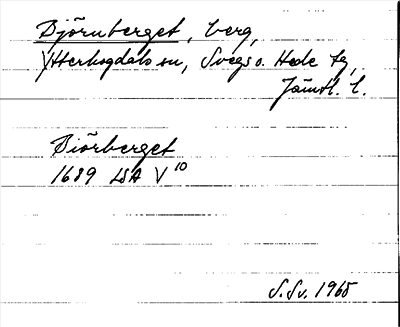 Björnberget, berg,
Ytterhogdals sn, Svegs o. Hede tg,
Jämtl. l.
Biörberget
1689 LSA V 10
S. Sv. 1965